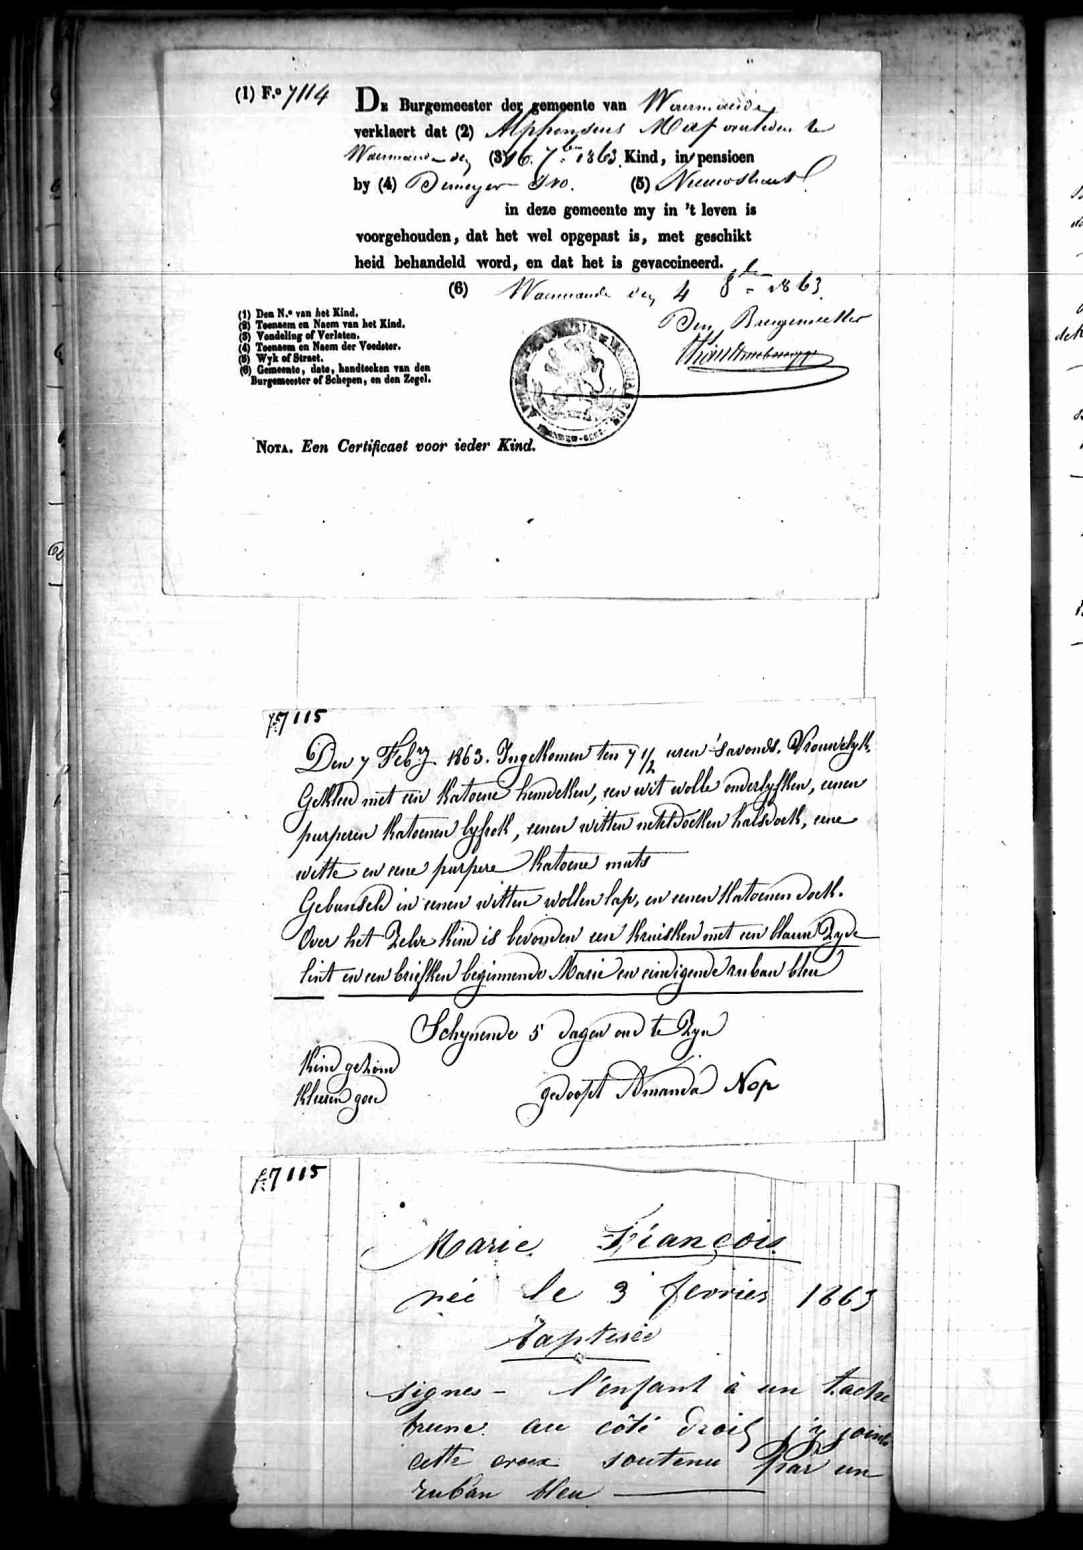 (1) F.º 7114
DE Burgemeester der gemeente van
verklaert dat (2) Alphonsus
(3) 16. 7ber 1863 Kind, in pensioen
by (4) Demeyer Ivo. (5)
in deze gemeente my in 't leven is
voorgehouden, dat het wel opgepast is, met geschikt
heid behandeld word, en dat het is gevaccineerd.
(6) den 4 8ber 1863.
Den Burgemeester
(1) Den N.º van het Kind.
(2) Toenaem en Naem van het Kind.
(3) Vondeling of Verlaten.
(4) Toenaem en Naem der Voedster.
(5) Wyk of Straet.
(6) Gemeente, date, handteeken van den
Burgemeester of Schepen, en den Zegel.
NOTA. Een Certificaet voor ieder Kind.
f.º 7115
Den 7 Febry 1863. Ingekomen ten 7 1/2 uren 'savonds. Vrouwelyk.
Gekleed met een katoene hemdeken, een wit wolle onderlyfken, eenen
purperen katoenen lyfrok, eenen witten neteldoeken halsdoek, eene
witte en eene purpere katoene muts
Gebunseld in eenen witten wollen lap, en eenen katoenen doek.
Over het zelve kind is bevonden een kruisken met een blauw zyde
lint en een briefken beginnende Marie en eindigende ruban bleu
Schynende 5 dagen oud te zyn
Kind gezond
Kleeren goed
gedoopt Amanda Nop
f.º 7115
Marie François
née le 3 fevrier 1863
baptisée
signes - l'enfant à un tache
brune au côté droit, j'y joint
cette croix soutenu par un
ruban bleu